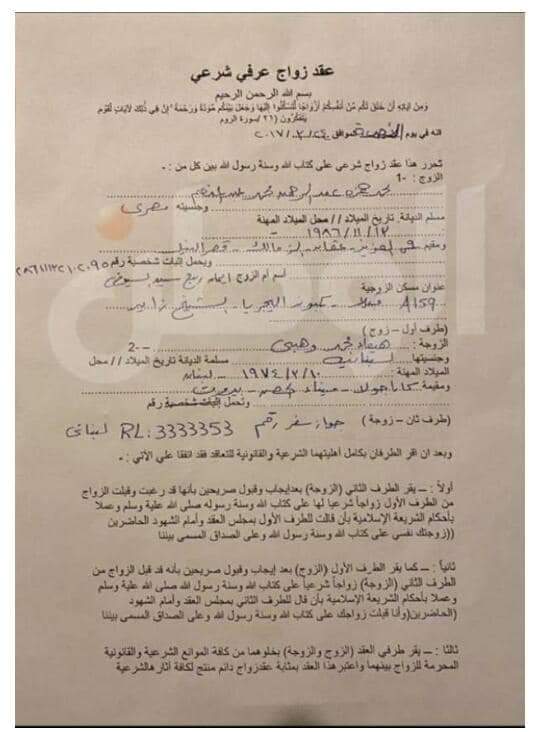 عقد زواج عرفي شرعي
بسم الله الرحمن الرحيم
وَمِنْ آيَاتِهِ أَنْ خَلَقَ لَكُم مِّنْ أَنفُسِكُمْ أَزْوَاجًا لِّتَسْكُنُوا إِلَيْهَا وَجَعَلَ بَيْنَكُم مَّوَدَّةً وَرَحْمَةً ۚ إِنَّ فِي ذَٰلِكَ لَآيَاتٍ لِّقَوْمٍ
يَتَفَكَّرُونَ (٢١/سورة الروم
انه في يوم الموافق
تحرر هذا عقد زواج شرعي على كتاب الله وسنة رسول الله بين كل من : -
الزوج : 1-
محمد عبد الرحمن محمد
وجنسيته مصرى
مسلم الديانة. تاريخ الميلاد // محل الميلاد المهنة
١٩٨٦/١١/١٢ -
ومقيم
ويحمل إثبات شخصية رقم
اسم ام الزوج
عنوان مسكن الزوجية
A159
(طرف أول - زوج)
الزوجة : هيفاء محمد وهبى 2- -
وجنسيتها لبنانية مسلمة الديانة تاريخ الميلاد // محل
الميلاد المهنة : ١٩٧٤/٢/١٠ - لبنان
ومقيمة - ميناء الحصن - بيروت
وتحمل إثبات شخصية رقم
(طرف ثان - زوجة) جواز سفر رقم RL: 3333353 لبنانى
وبعد ان اقر الطرفان بكامل أهليتهما الشرعية والقانونية للتعاقد فقد اتفقا علي الآتي : -
أولاً : ــ يقر الطرف الثاني (الزوجة) بعدإيجاب وقبول صريحين بأنها قد رغبت وقبلت الزواج
من الطرف الأول زواجاً شرعيا لها على كتاب الله وسنة رسوله صلى الله علية وسلم وعملا
بأحكام الشريعة الإسلامية بأن قالت للطرف الأول بمجلس العقد وأمام الشهود الحاضرين
((زوجتك نفسي على كتاب الله وسنة رسول الله وعلى الصداق المسمى بيننا
ثانياً : ــ كما يقر الطرف الأول (الزوج) بعد إيجاب وقبول صريحين بأنه قد قبل الزواج من
الطرف الثاني (الزوجة) زواجاً شرعياً على كتاب الله وسنة رسول الله صلى الله علية وسلم
وعملا بأحكام الشريعة الإسلامية بأن قال للطرف الثاني بمجلس العقد وأمام الشهود
(الحاضرين(وأنا قبلت زواجك على كتاب الله وسنة رسول الله وعلى الصداق المسمى بيننا
ثالثا : ــ يقر طرفي العقد (الزوج والزوجة) بخلوهما من كافة الموانع الشرعية والقانونية
المحرمة للزواج بينهما واعتبر هذا العقد بمثابة عقدزواج دائم منتج لكافة آثارهالشرعية